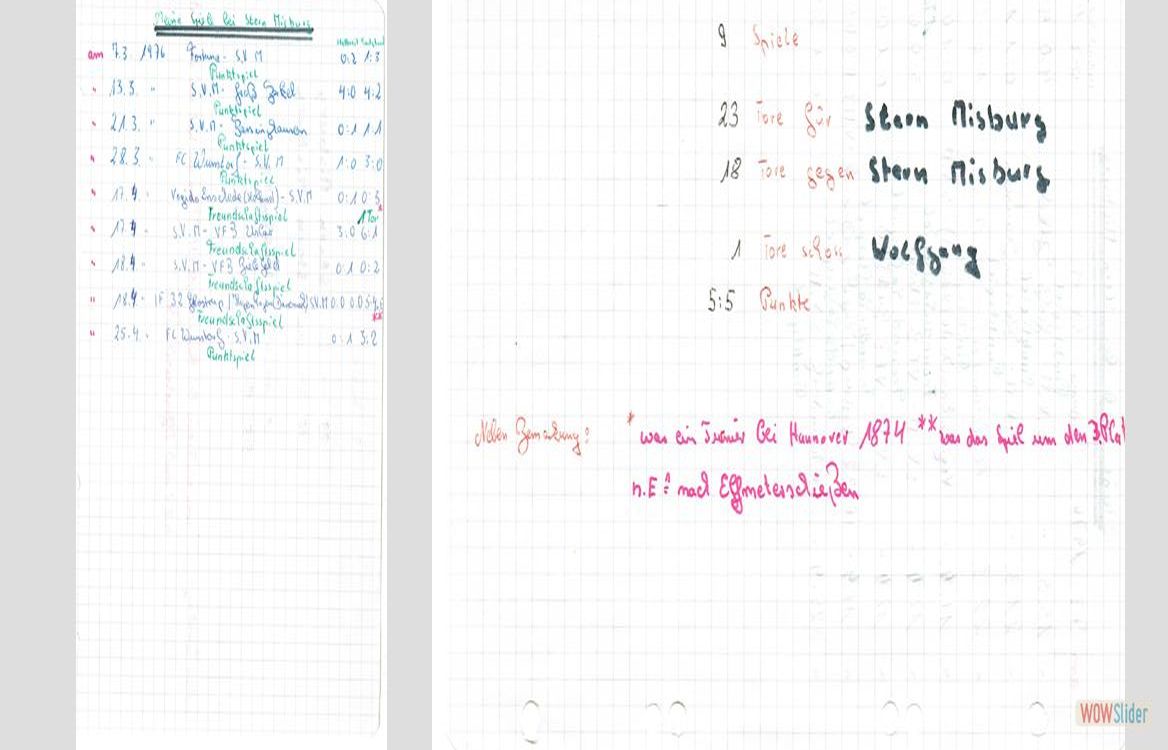 Meine Spiele bei Stern Misburg
Halbzeit Endstand
am 7.3. 1976 Fortuna - S.V.M 0:2 1:3
Punktspiel
" 13.3. " S.V.M - Groß 4:0 4:2
Punktspiel
" 21.3. " S.V.M - 0:1 1:1
Punktspiel
" 28.3. " FC Wunstorf - S.V.M 1:0 3:0
Punktspiel
" 17.4 (Holland) - S.V.M 0:1 0:5
Freundschaftsspiel 1 Tor
" 17.4 S.V.M - VFB 3:0 6:1
Freundschaftsspiel
" 18.4 S.V.M - VFB 0:1 0:2
Freundschaftsspiel
" 18.4 " IF 32 S.V.M 0:0 0:0
Freundschaftsspiel **
" 25.4. " FC Wunstorf - S.V.M 0:1 3:2
Punktspiel
9 Spiele
23 Tore für Stern Misburg
18 Tore gegen Stern Misburg
1 Tore schoss Wolfgang
5:5 Punkte
Neben Bemerkung: * war ein Turnier bei Hannover 1874 ** war das Spiel um den 3. Plat
n.E = nach Elfmeterschießen
WOWSlider